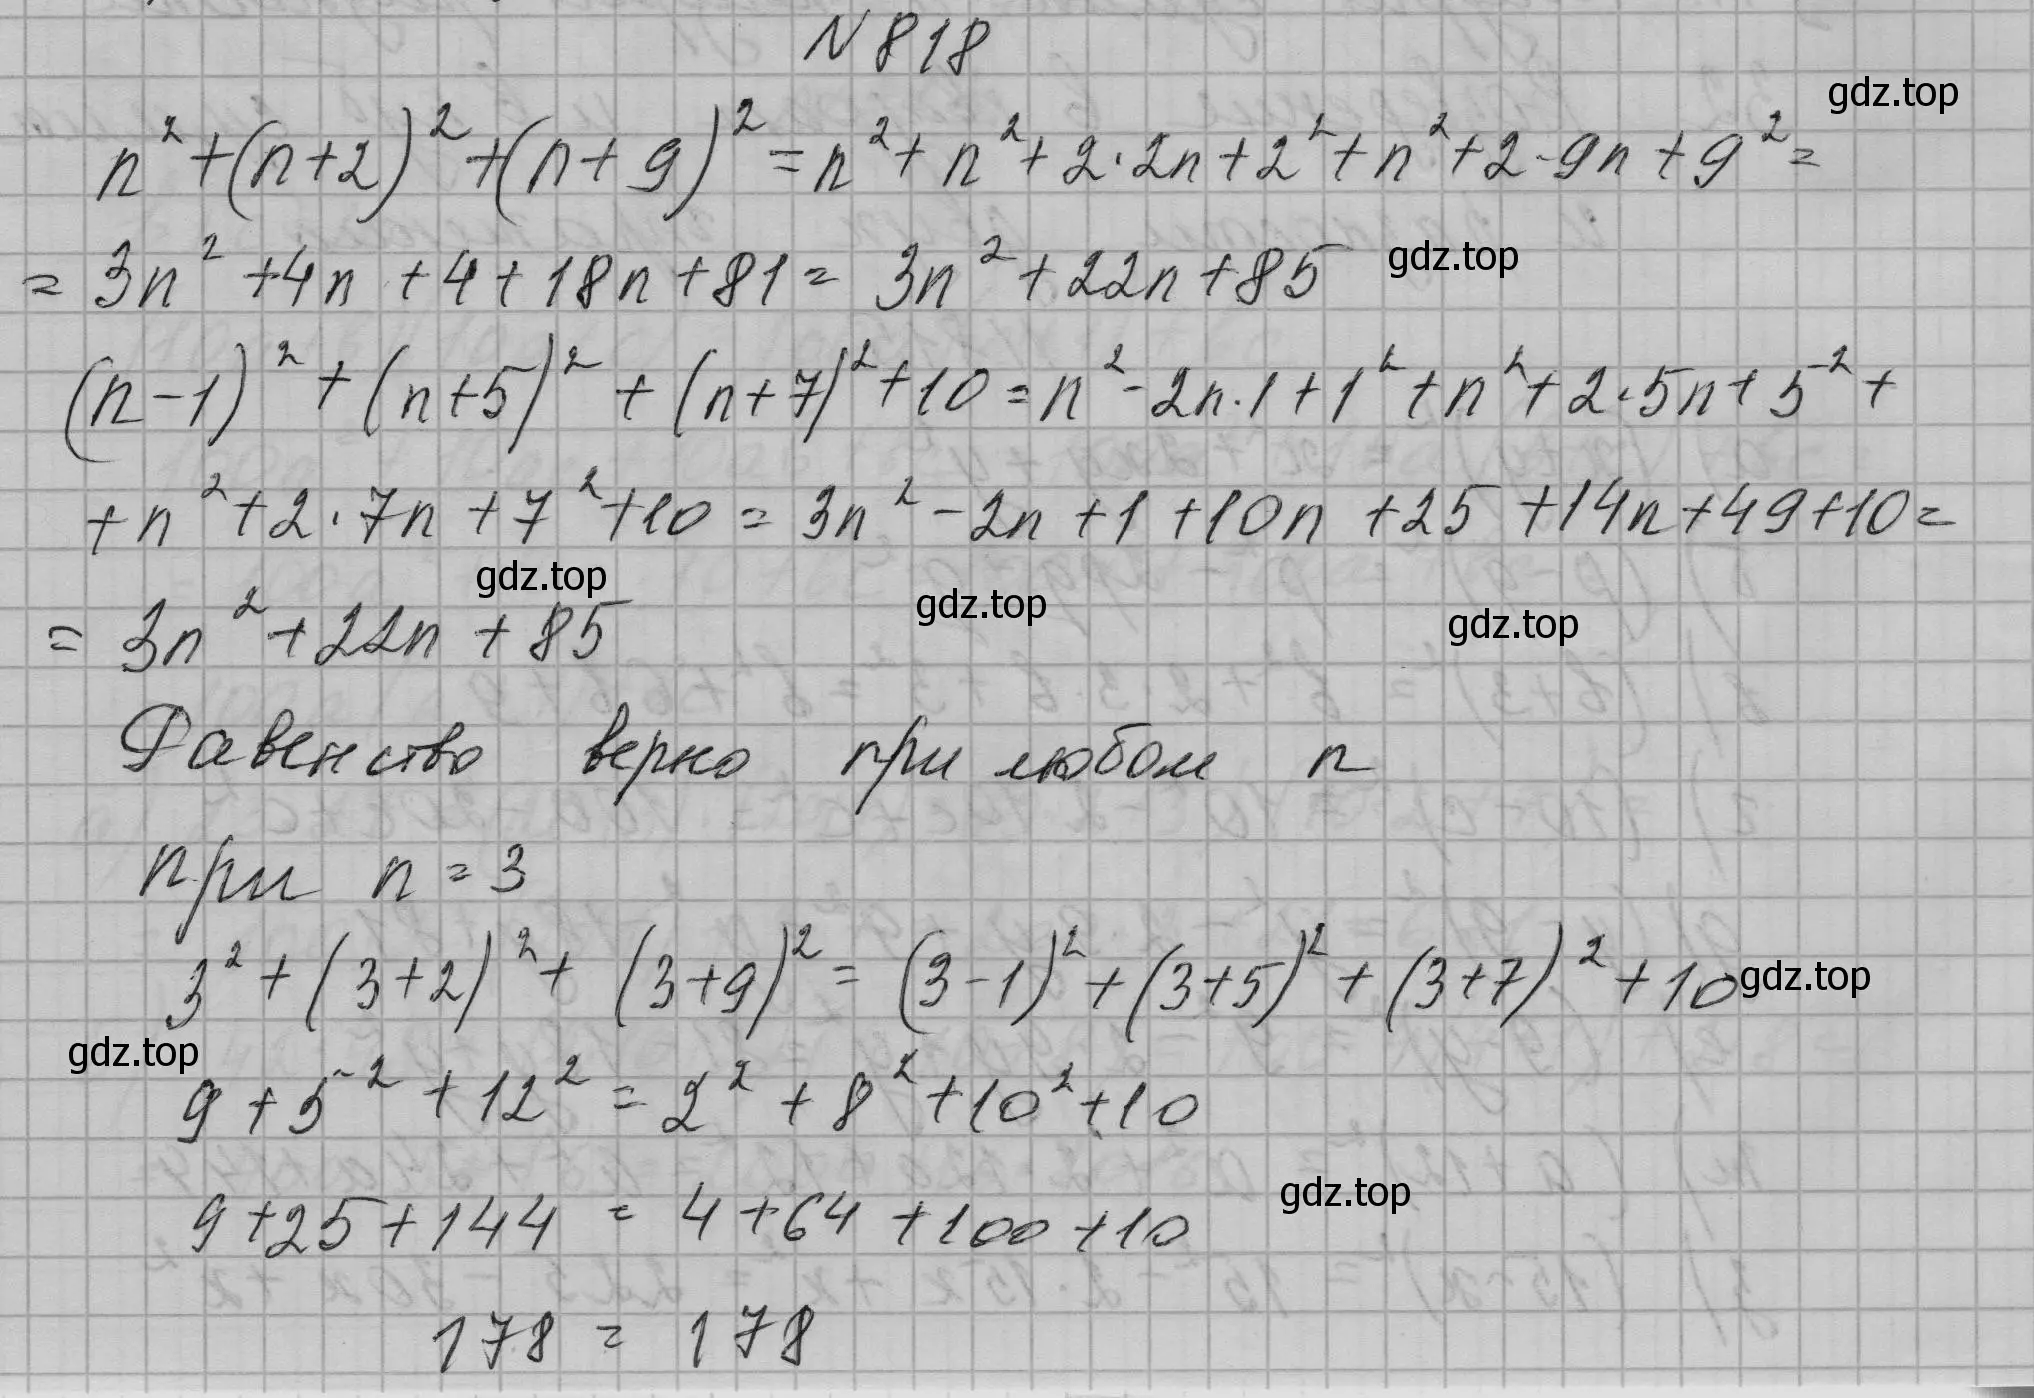 N 818
gdz.top
n² + (n+2)² + (n+9)² = n² + n² + 2·2n + 2² + n² + 2·9n + 9² =
= 3n² + 4n + 4 + 18n + 81 = 3n² + 22n + 85 gdz.top
(n-1)² + (n+5)² + (n+7)² + 10 = n² - 2n·1 + 1² + n² + 2·5n + 5² +
+ n² + 2·7n + 7² + 10 = 3n² - 2n + 1 + 10n + 25 + 14n + 49 + 10 =
gdz.top gdz.top gdz.top
= 3n² + 22n + 85
Равенство верно при любом n
при n = 3
3² + (3+2)² + (3+9)² = (3-1)² + (3+5)² + (3+7)² + 10 gdz.top
gdz.top
9 + 5² + 12² = 2² + 8² + 10² + 10
gdz.top
9 + 25 + 144 = 4 + 64 + 100 + 10
178 = 178